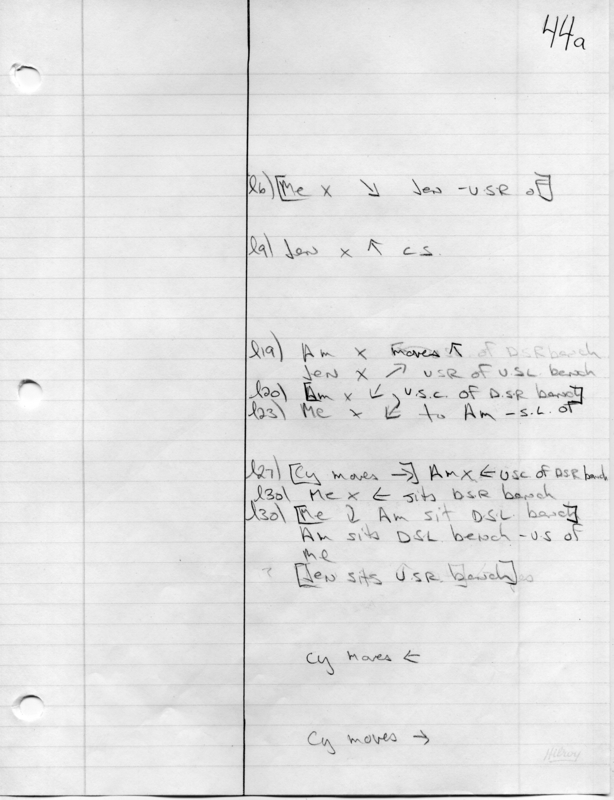 44a
l6) [Me x ↘ Jen - U.S.R of]
l9) Jen x ↖ C.S.
l19) Am x moves ↖ of DSR bench
Jen x ↗ USR of U.S.L. bench
l20) [Am x ↙, U.S.C. of D.S.R bench]
l23) Me x ↙ to Am - S.L. of
l27) [Cy moves →] Am x ← USC of DSR bench
l30) Me x ← sits DSR bench
l30) [Me ↓ Am sit DSL bench]
Am sits DSL bench - US of
Me
? [Jen sits U.S.R. bench]
Cy moves ←
Cy moves →